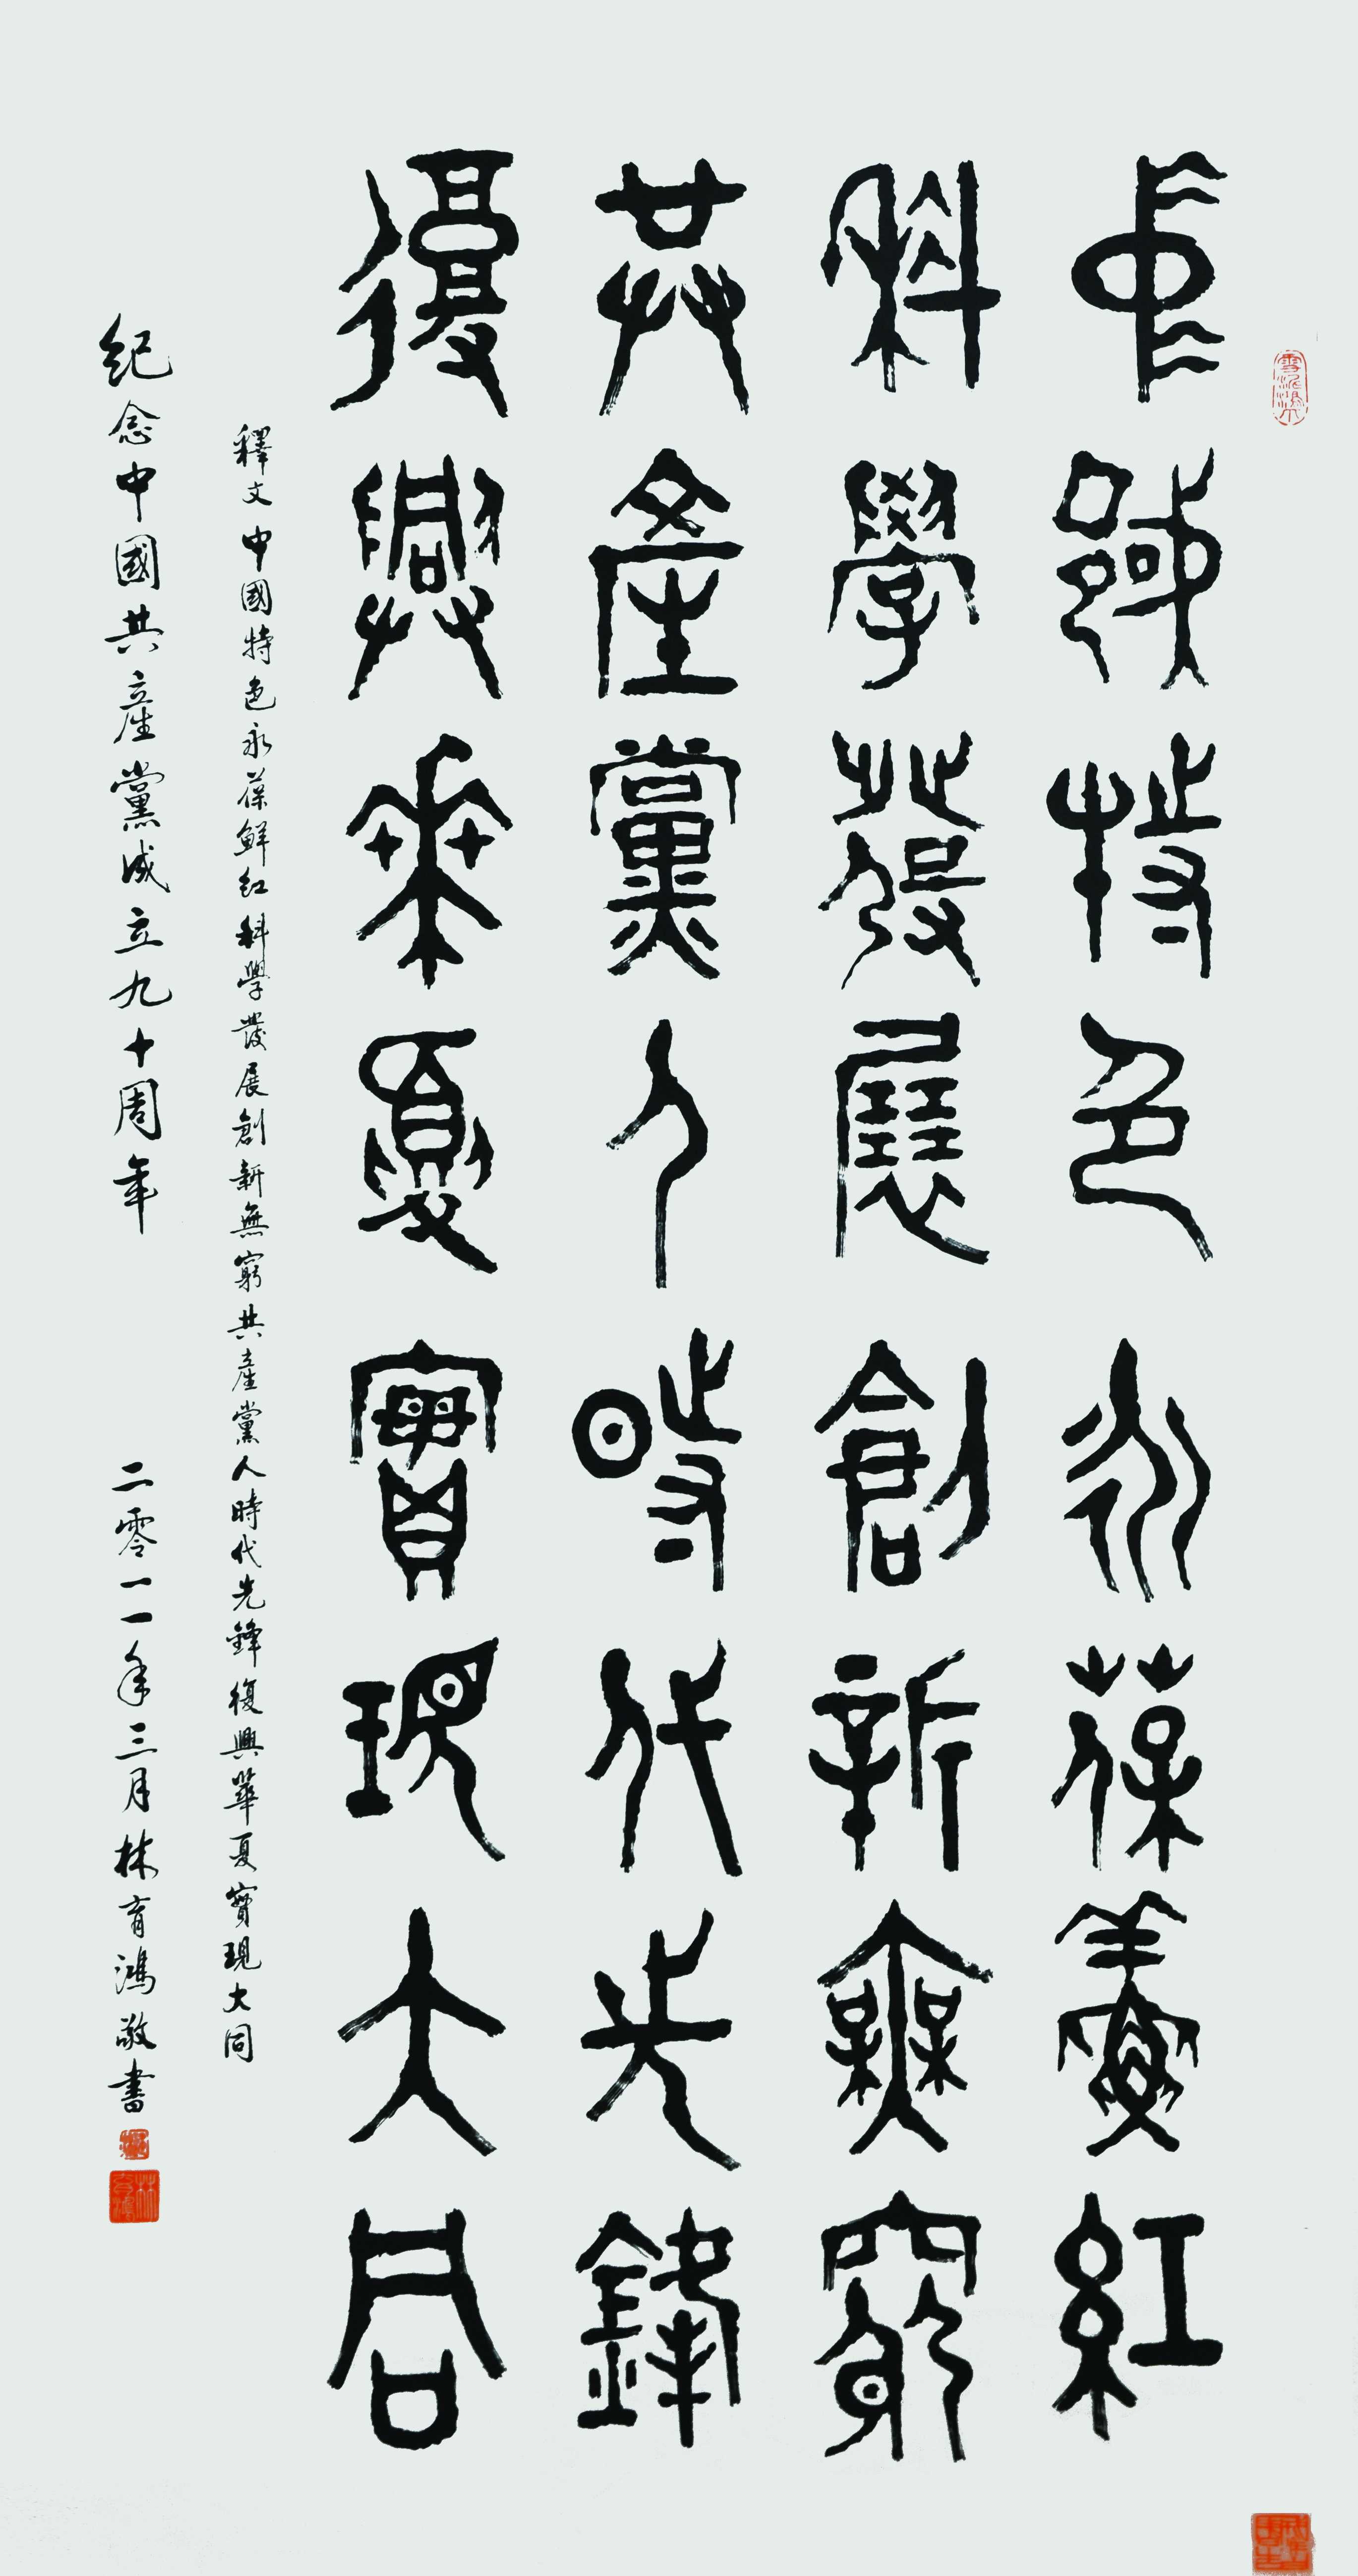 中國特色永葆鮮紅
科學發展創新無窮
共產黨人時代先鋒
復興華夏實現大同
釋文中國特色永葆鮮紅科學發展創新無窮共產黨人時代先鋒復興華夏實現大同
紀念中國共產黨成立九十周年 二零一一年三月林育鴻敬書